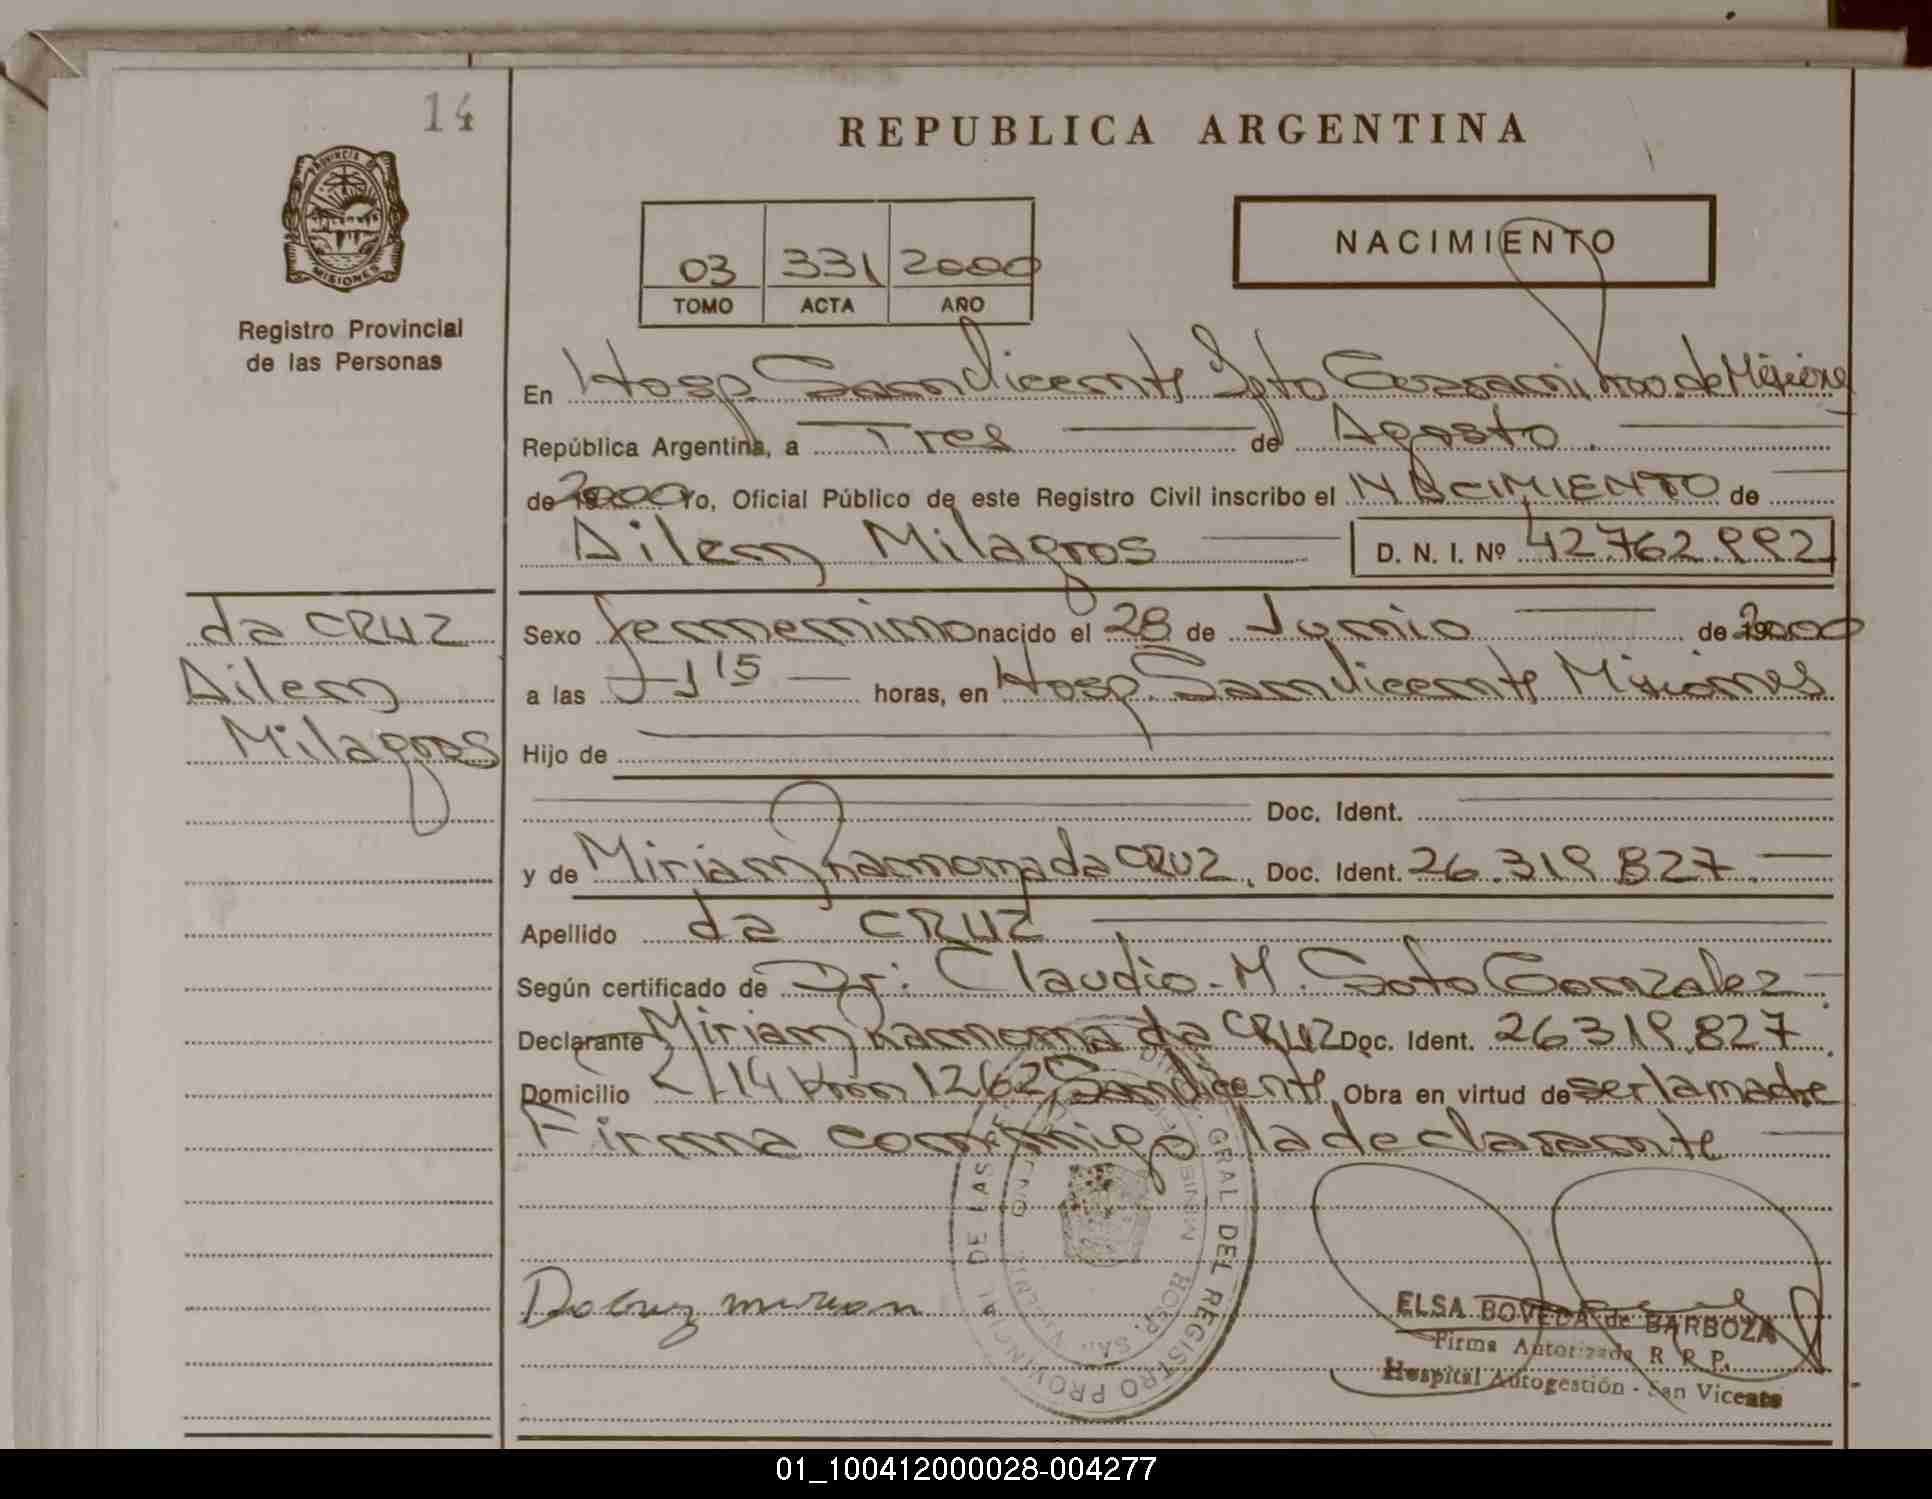 14
REPUBLICA ARGENTINA
PROVINCIA DE
MISIONES
Registro Provincial
de las Personas
03 331 2000
TOMO ACTA AÑO
NACIMIENTO
En Hosp. San Vicente Dpto Guarani Prov. de Misiones
República Argentina, a Tres de Agosto.
de 2000 Yo, Oficial Público de este Registro Civil inscribo el NACIMIENTO de
Ailem Milagros D. N. I. Nº 42.762.992
da CRUZ
Ailem
Milagros
Sexo femenino nacido el 28 de Junio de 2000
a las 1 15 horas, en Hosp. San Vicente Misiones
Hijo de
Doc. Ident.
y de Miriam Ramona da CRUZ, Doc. Ident. 26.319.827.
Apellido da CRUZ
Según certificado de Dr: Claudio. M. Soto Gonzalez
Declarante Miriam Ramona da CRUZ Doc. Ident. 26319.827.
Domicilio R/14 Km 1262 San Vicente Obra en virtud de ser la madre
Firma conmigo la declarante
Dacruz miriam
GRAL. DEL REGISTRO PROVINCIAL DE LAS
HOSP. SAN VICENTE
ELSA BOVEDA de BARBOZA
Firma Autorizada R. R. P.
Hospital Autogestión - San Vicente
01_100412000028-004277